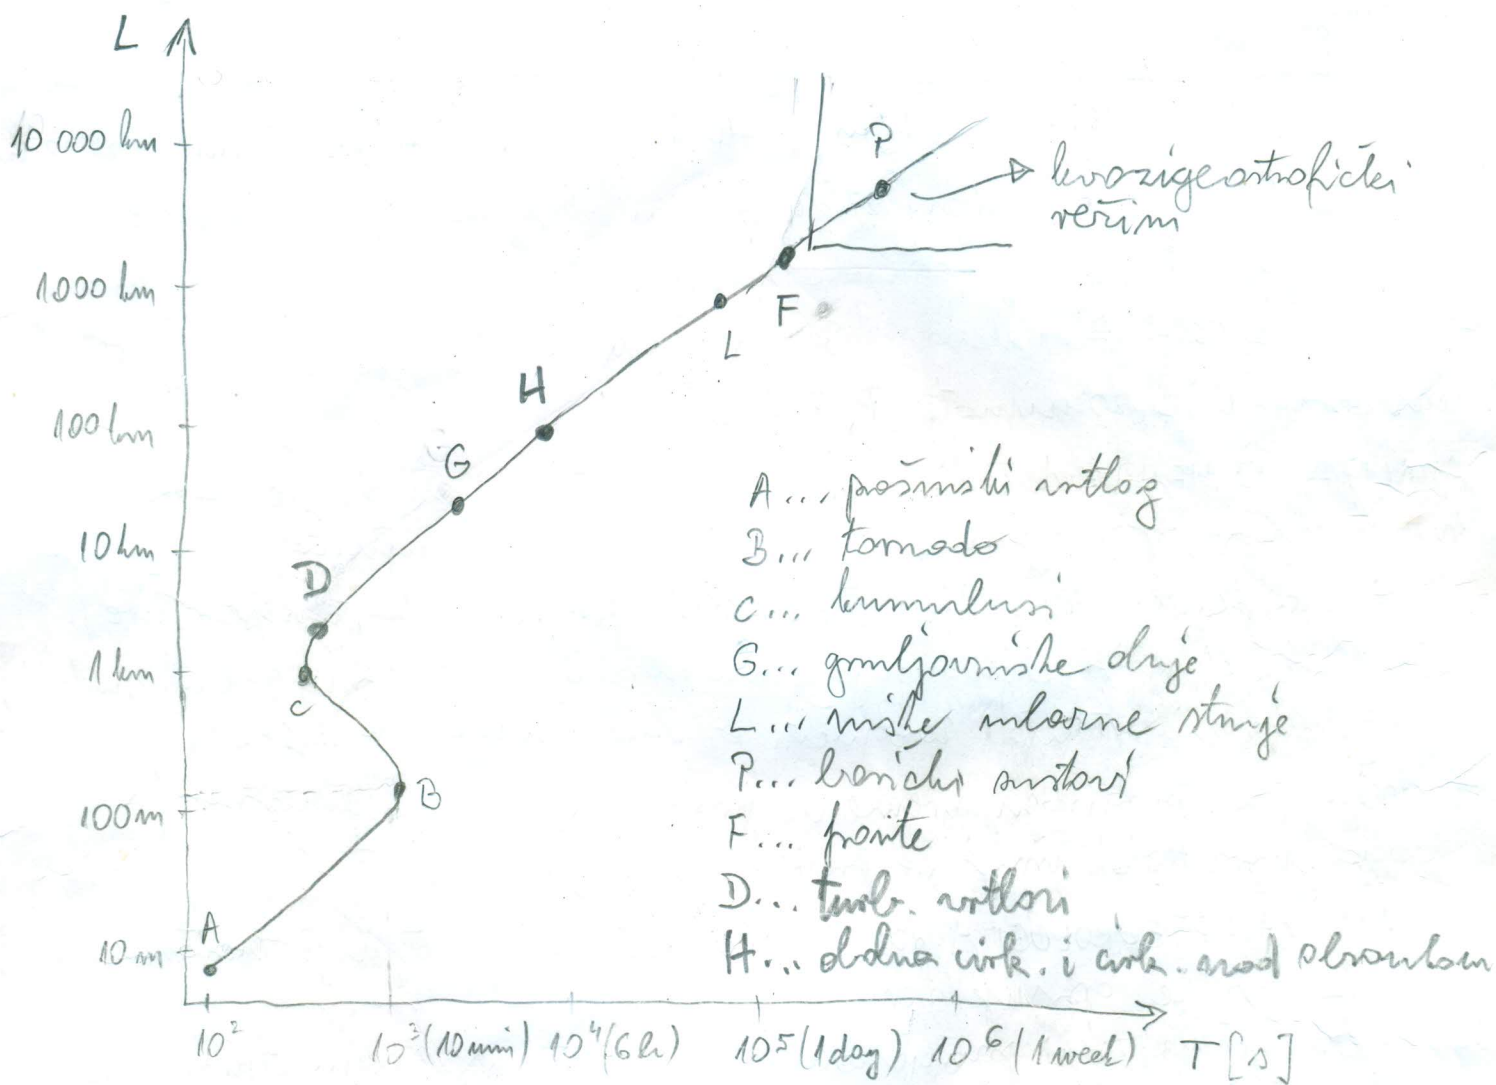 L
10 000 km
1000 km
100 km
10 km
1 km
100 m
10 m
P
kvazigeostrofički
režim
F
L
H
G
D
C
B
A
A... pješčani vrtlog
B... tornado
C... kumulusi
G... grmljavinske oluje
L... niske mlazne struje
P... barički sustavi
F... fronte
D... turb. vrtlozi
H... obalna cirk. i cirk. nad
10² 10³ (10 min) 10⁴ (6h) 10⁵ (1 day) 10⁶ (1 week) T [s]